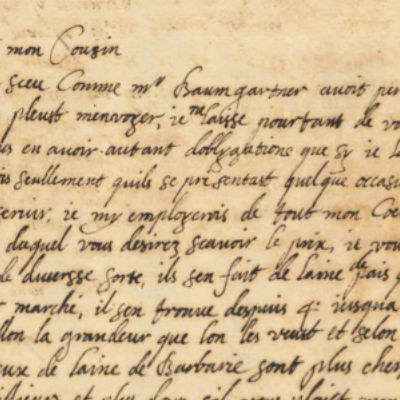 mon Cousin
sceu Comme mr Baumgartner avoit per
pleust m'envoyer, ie me laisse pourtant de vo
us en avoir autant dobligations que sy ie l
is seullement quils se presentast quelque occasi
servir, ie my employerois de tout mon Coe
duquel vous desirez scavoir le prix, ie vou
de diversse sorte, ils sen fait de laine de pais
marché, il sen trouve despuis 4 iusqua
llon la grandeur que lon les veut et selon
eux de laine de Barbarie sont plus cher
et plus